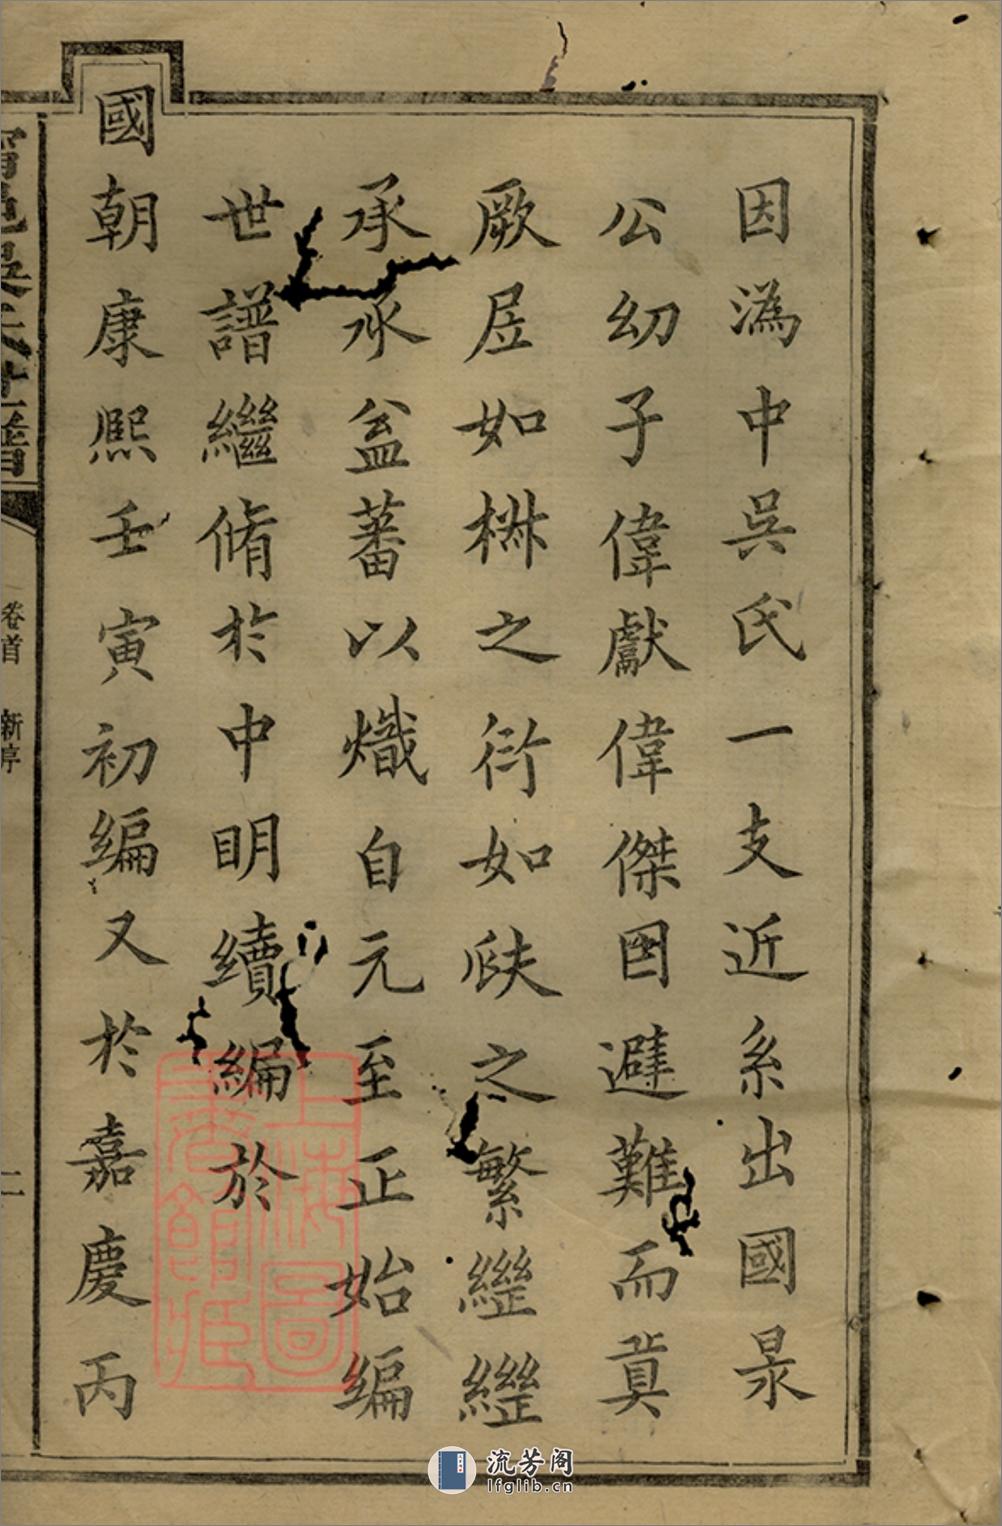 因潙中吳氏一支近系出國泉
公幼子偉獻偉傑因避難而奠
厥居如椒之衍如瓞之繁繼繼
承承益蕃以熾自元至正始編
世譜繼脩於中明續編於
國朝康熙壬寅初編又於嘉慶丙
吳氏世譜
卷首 新序
二
上海圖
書館藏
流芳阁
lfglib.cn